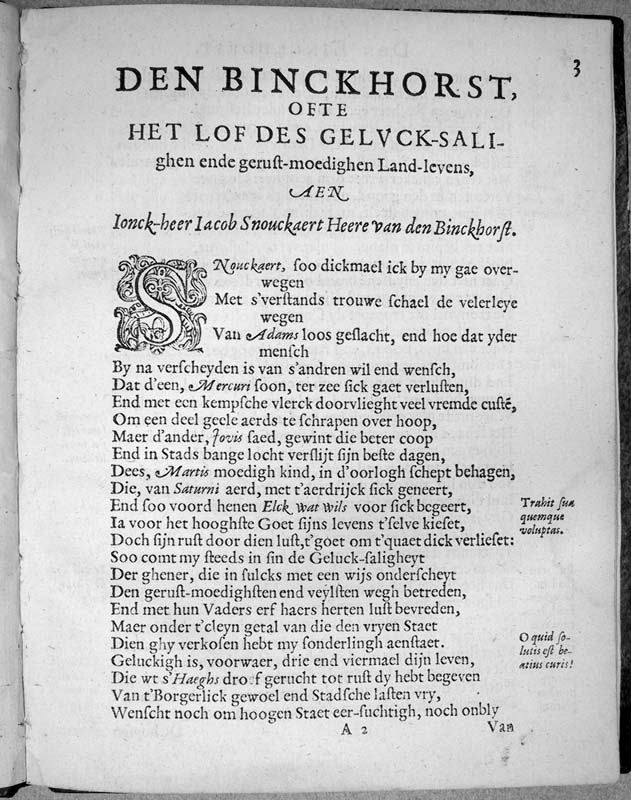 3
DEN BINCKHORST,
OFTE
HET LOF DES GELVCK-SALI-
ghen ende geruſt-moedighen Land-levens,
AEN
Ionck-heer Iacob Snouckaert Heere van den Binckhorſt.
SNouckaert, ſoo dickmael ick by my gae over-
wegen
Met s'verſtands trouwe ſchael de velerleye
wegen
Van Adams loos geſlacht, end hoe dat yder
menſch
By na verſcheyden is van s'andren wil end wenſch,
Dat d'een, Mercuri ſoon, ter zee ſick gaet verluſten,
End met een kempſche vlerck doorvlieght veel vremde cuſtē,
Om een deel geele aerds te ſchrapen over hoop,
Maer d'ander, Jovis ſaed, gewint die beter coop
End in Stads bange locht verſlijt ſijn beſte dagen,
Dees, Martis moedigh kind, in d'oorlogh ſchept behagen,
Die, van Saturni aerd, met t'aerdrijck ſick geneert,
End ſoo voord henen Elck wat wils voor ſick begeert,
Ia voor het hooghſte Goet ſijns levens t'ſelve kieſet,
Doch ſijn ruſt door dien luſt, t'goet om t'quaet dick verlieſet:
Trahit ſua
quemque
voluptas.
Soo comt my ſteeds in ſin de Geluck-ſaligheyt
Der ghener, die in ſulcks met een wijs onderſcheyt
Den geruſt-moedighſten end veylſten wegh betreden,
End met hun Vaders erf haers herten luſt bevreden,
Maer onder t'cleyn getal van die den vryen Staet
Dien ghy verkoſen hebt my ſonderlingh aenſtaet.
Geluckigh is, voorwaer, drie end viermael dijn leven,
Die wt s'Haeghs droef gerucht tot ruſt dy hebt begeven
O quid ſo-
lutis eſt be-
atius curis!
Van t'Borgerlick gewoel end Stadſche laſten vry,
Wenſcht noch om hoogen Staet eer-ſuchtigh, noch onbly
A 2
Van